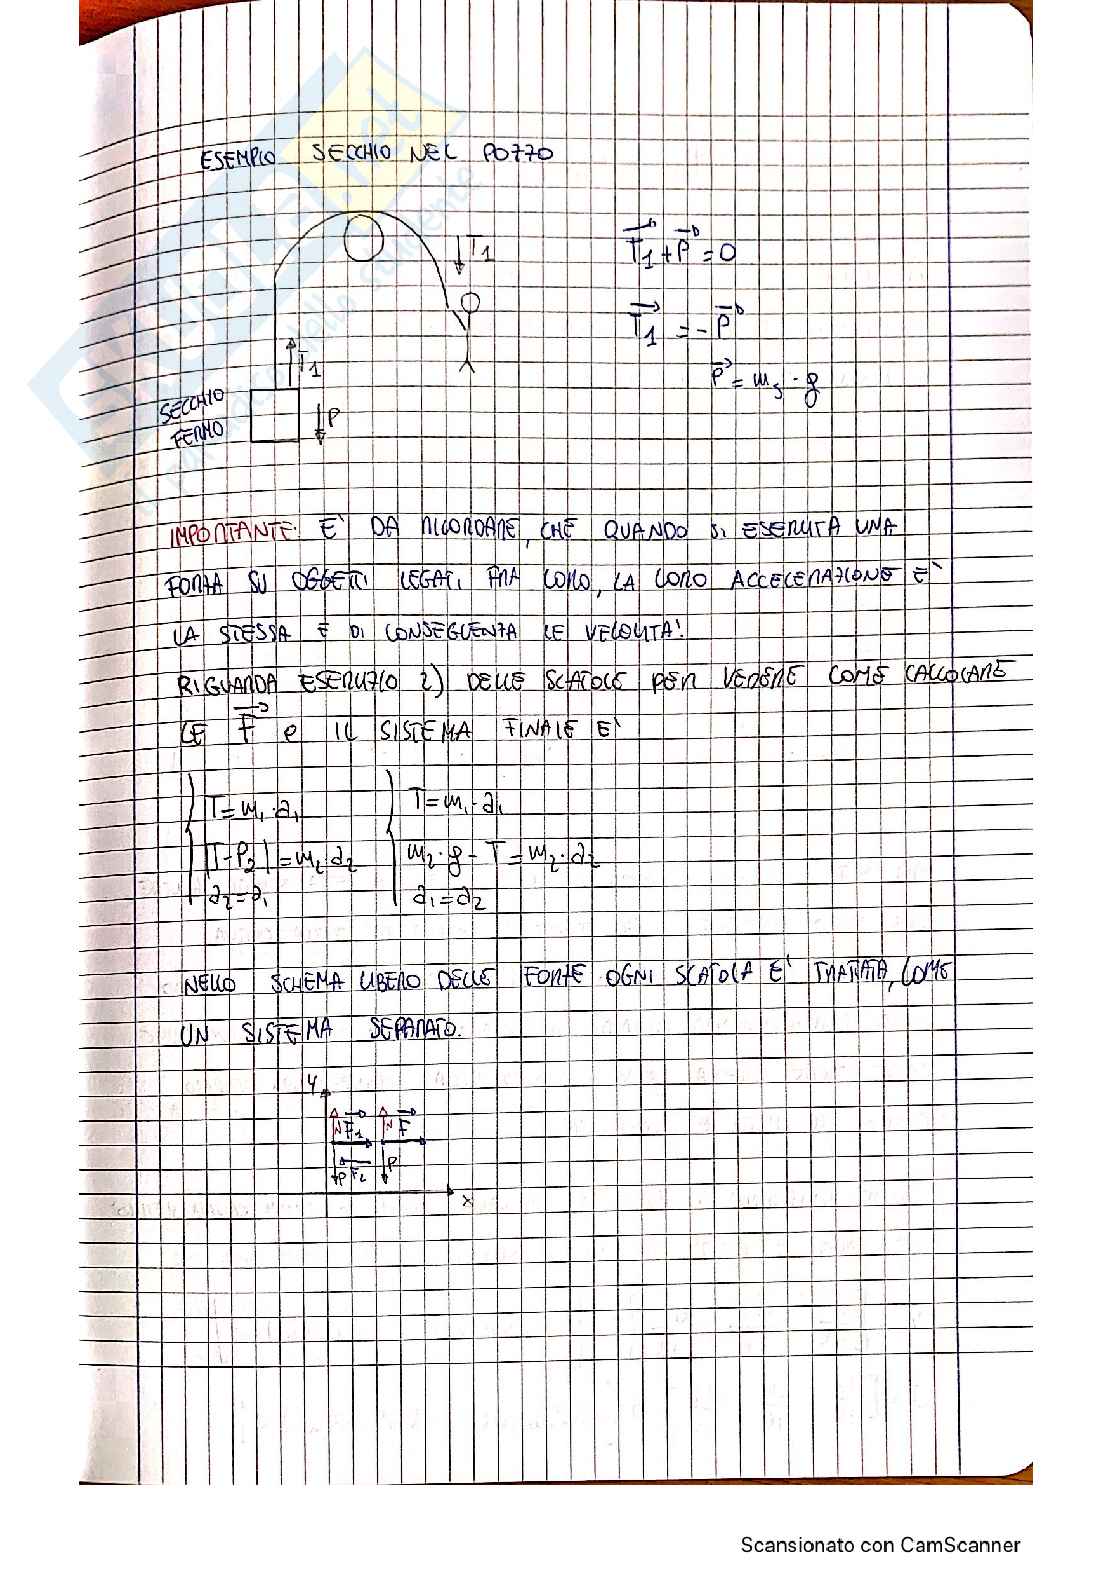 ESEMPIO SECCHIO NEL POZZO
T1
T1 + P = 0
T1 = -P
P = ms · g
T1
SECCHIO
FERMO
P
IMPORTANTE: E' DA RICORDARE, CHE QUANDO SI ESERCITA UNA
FORZA SU OGGETTI LEGATI FRA LORO, LA LORO ACCELERAZIONE E'
LA STESSA E DI CONSEGUENZA LE VELOCITA'.
RIGUARDA ESERCIZIO 2) DELLE SCATOLE PER VEDERE COME CALCOLARE
LE F e IL SISTEMA FINALE E'
T = m1 · a1
|T - P2| = m2 · a2
a2 = a1
T = m1 · a1
m2 · g - T = m2 · a2
a1 = a2
NELLO SCHEMA LIBERO DELLE FORZE OGNI SCATOLA E' TRATTATA, COME
UN SISTEMA SEPARATO.
Y
N F2 N F
P F2 P
X
Scansionato con CamScanner